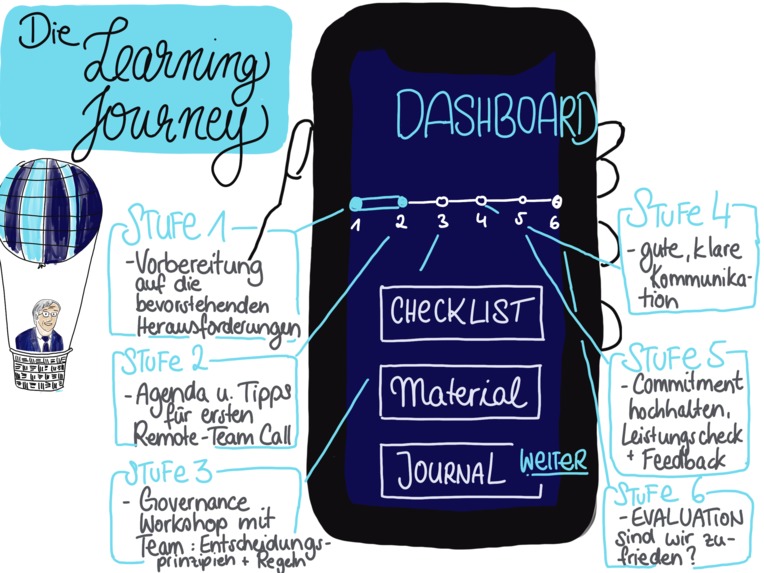 Die Learning
Journey
DASHBOARD
1 2 3 4 5 6
CHECKLIST
Material
JOURNAL
WEITER
STUFE 1
- Vorbereitung
auf die
bevorstehenden
Herausforderungen
STUFE 2
- Agenda u. Tipps
für ersten
Remote-Team Call
STUFE 3
- Governance
Workshop mit
Team: Entscheidungs-
prinzipien + Regeln
STUFE 4
- gute, klare
Kommunika-
tion
STUFE 5
- Commitment
hochhalten,
Leistungscheck
+ Feedback
STUFE 6
- EVALUATION
sind wir zu-
frieden?